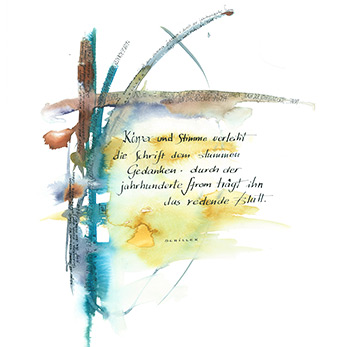 Körper und Stimme verleiht
die Schrift dem stummen
Gedanken · durch der
jahrhunderte Strom trägt ihn
das redende Blatt.
SCHILLER